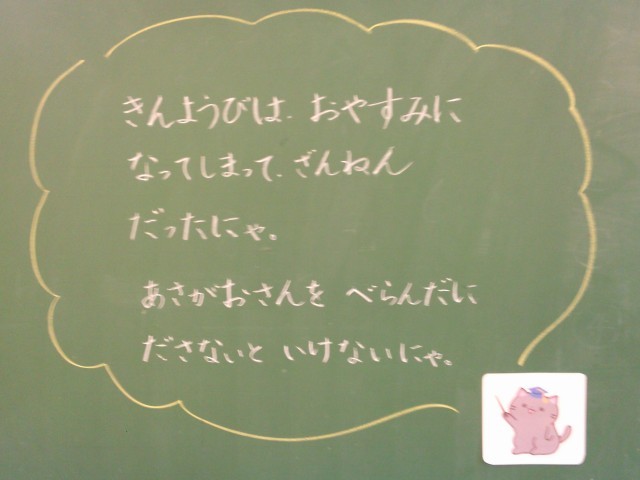 きんようびは、おやすみに
なってしまって、ざんねん
だったにゃ。
あさがおさんを べらんだに
ださないと いけないにゃ。